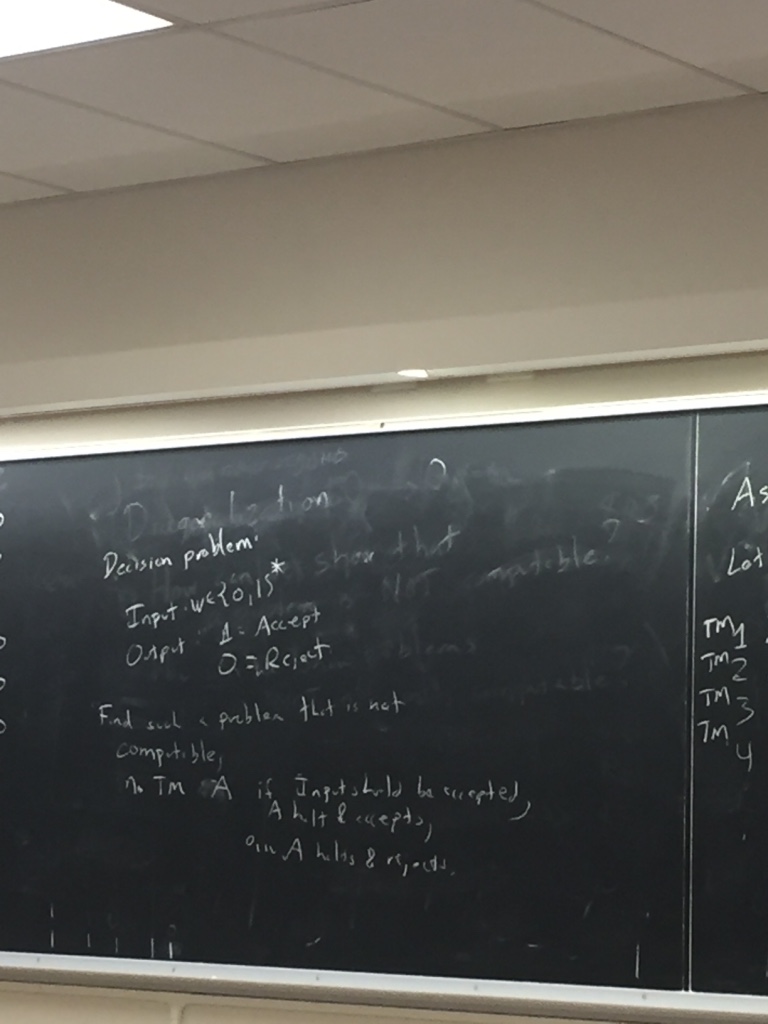 Diagonalization
Decision problem:
Input: w∈{0,1}*
Output 1 = Accept
0 = Reject
Find such a problem that is not
computible,
no TM A if Input should be accepted,
A halt & accepts,
o.w. A halts & rejects.
As
Let
TM1
TM2
TM3
TM4